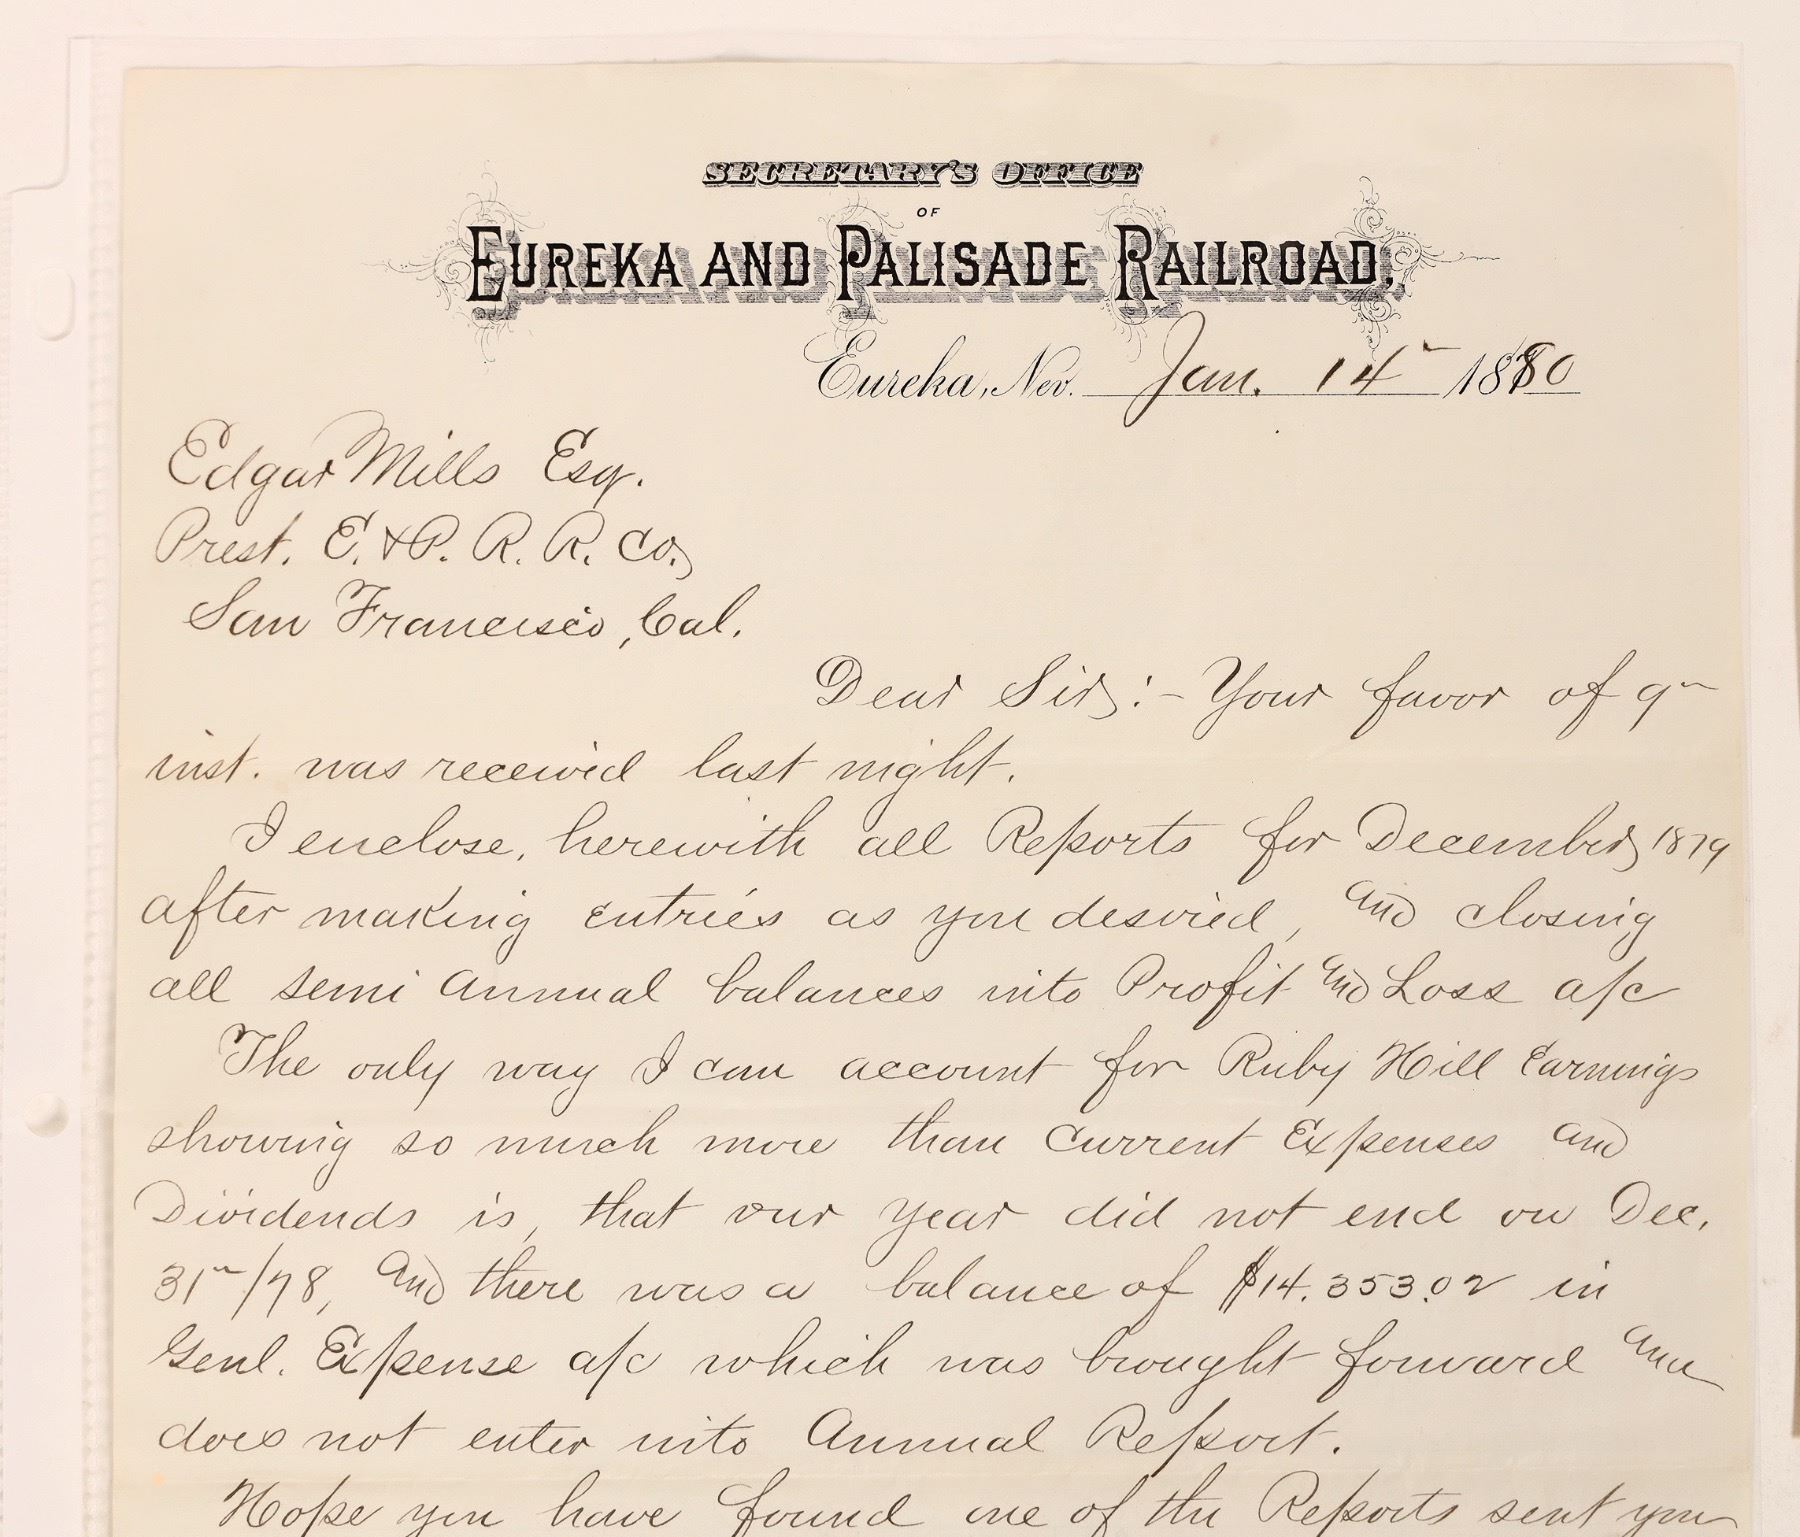 SECRETARY'S OFFICE
OF
EUREKA AND PALISADE RAILROAD,
Eureka, Nev. Jan. 14th 1880
Edgar Mills Esq.
Prest. E. & P. R. R. Co,
San Francisco, Cal.
Dear Sir:- Your favor of 9th
inst. was received last night.
I enclose, herewith all Reports for December, 1879
after making entries as you desired, and closing
all semi annual balances into Profit and Loss a/c
The only way I can account for Ruby Hill Earnings
showing so much more than current Expenses and
Dividends is, that our year did not end on Dec.
31st/78, and there was a balance of $14.353.02 in
Genl. Expense a/c which was brought forward and
does not enter into Annual Report.
Hope you have found one of the Reports sent you